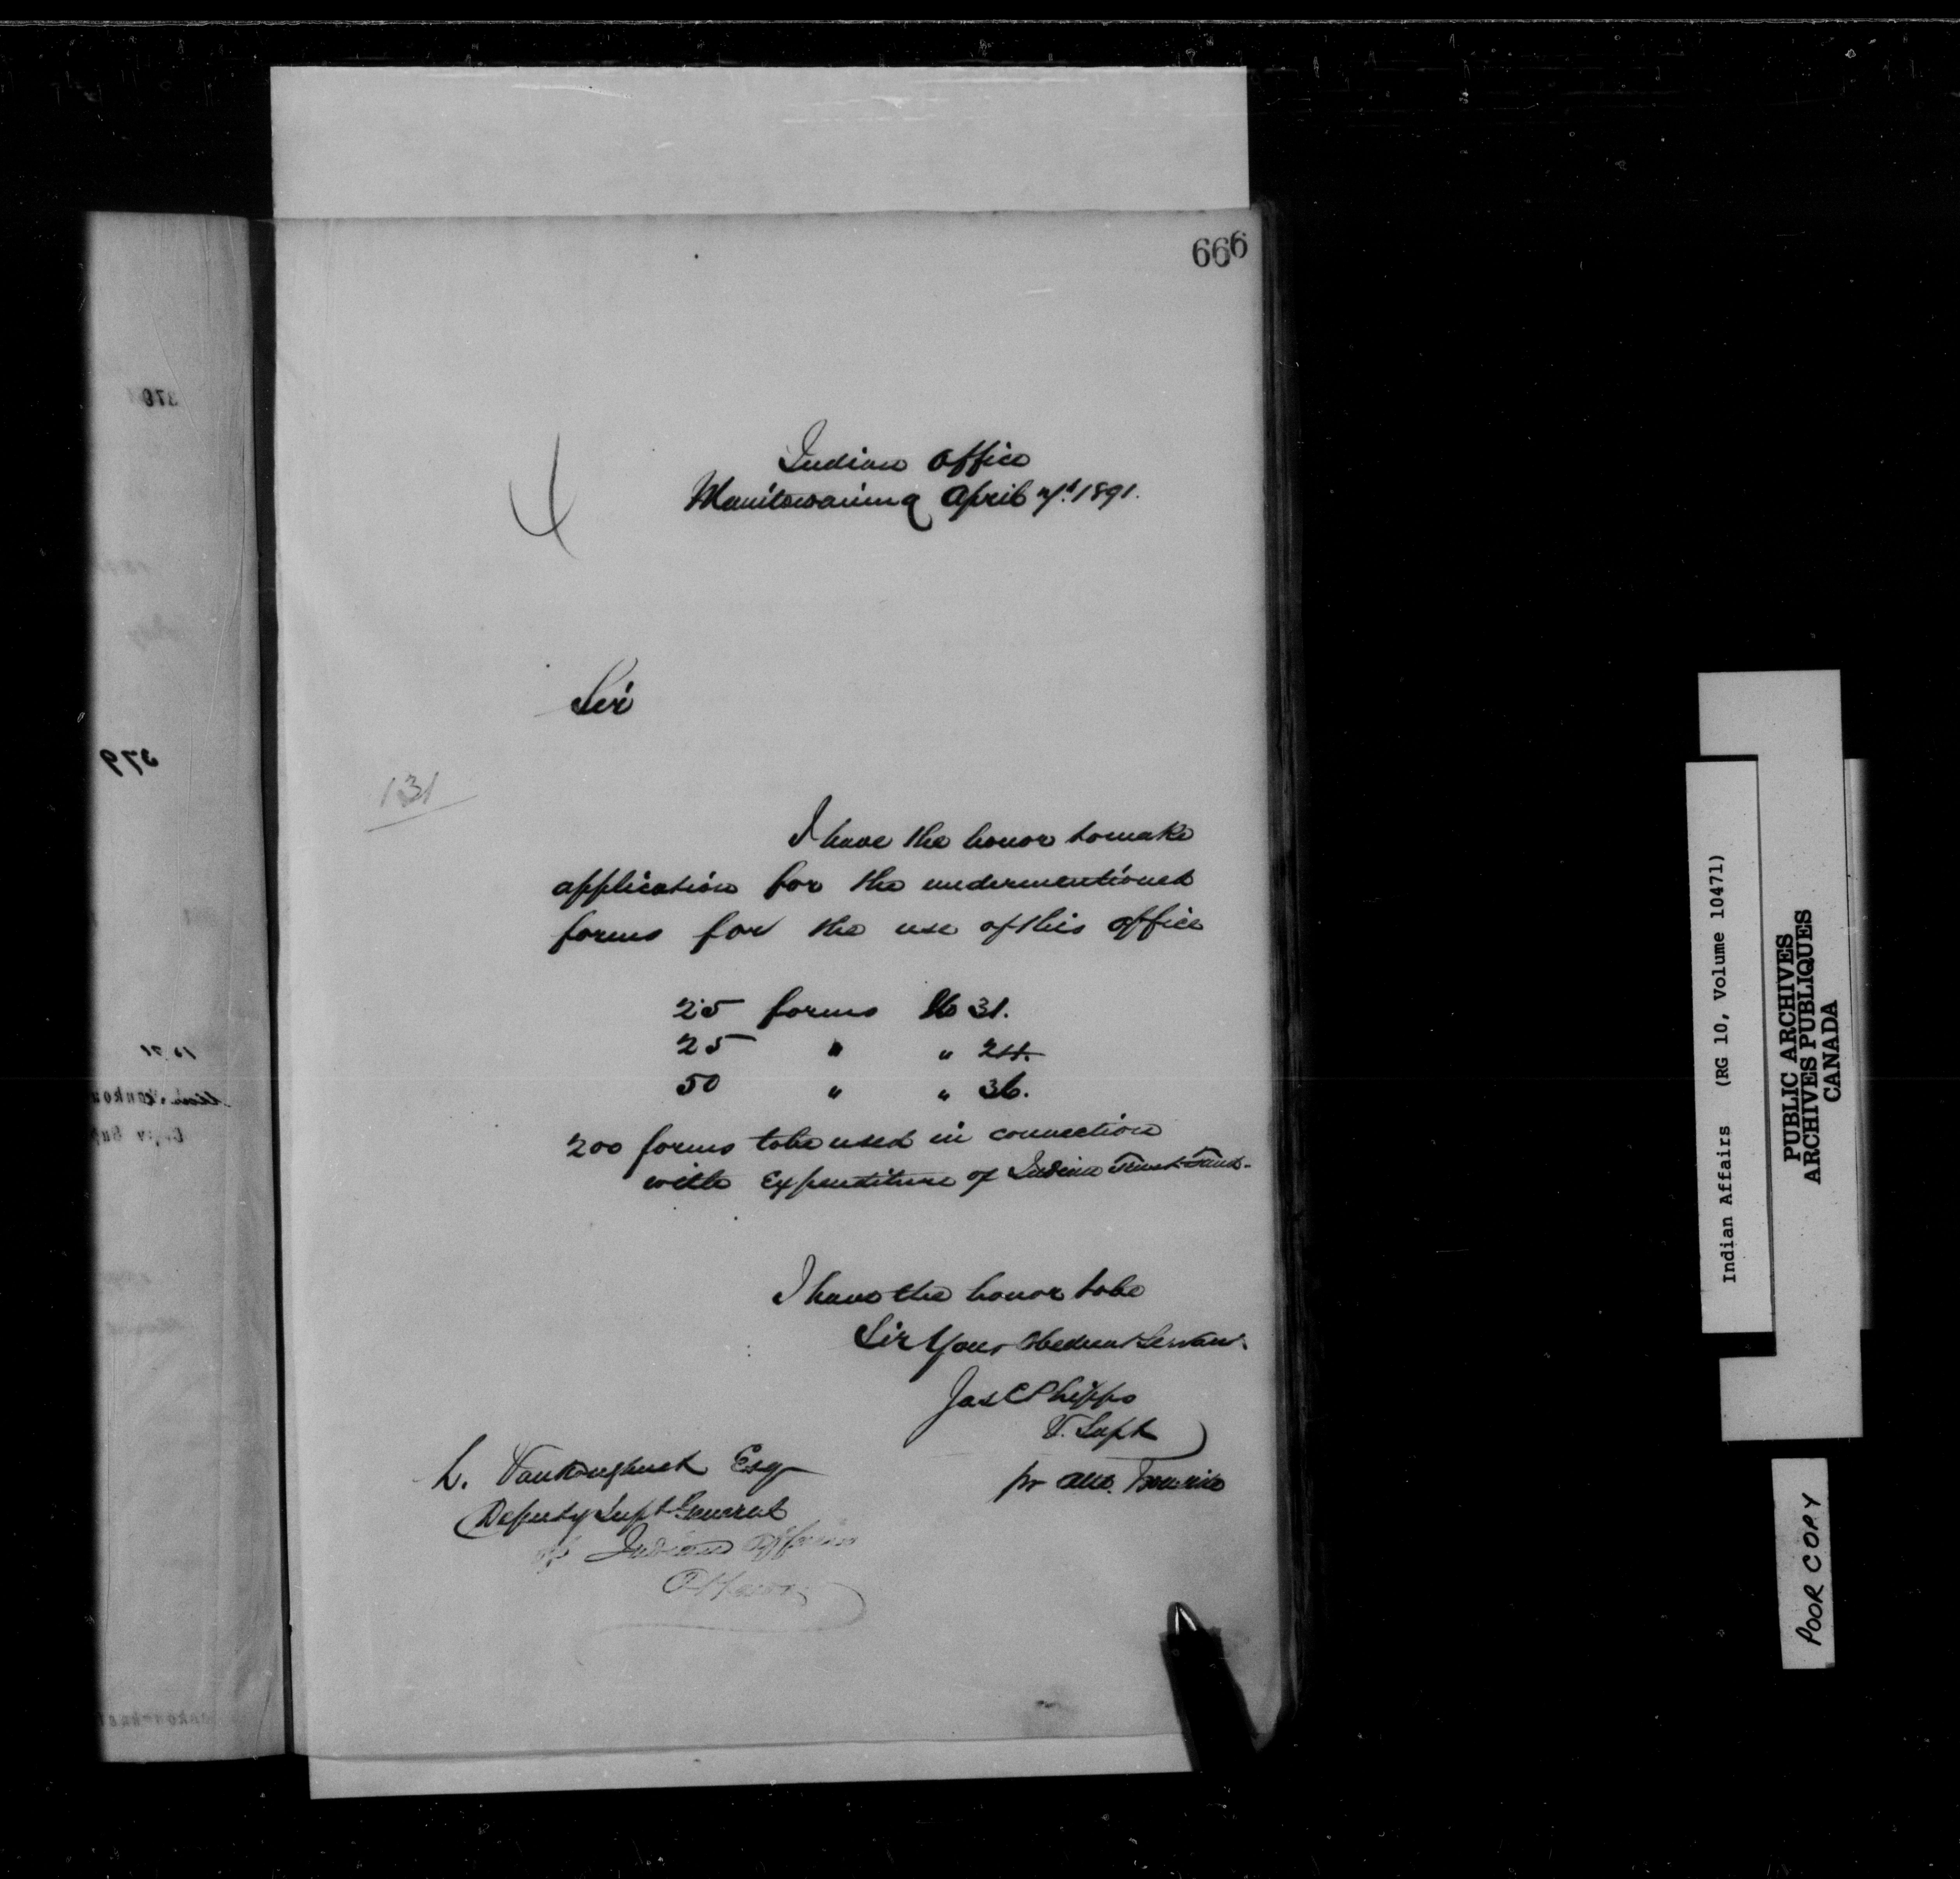 666
Indian Office
Manitowaning April 7th 1891.
Sir
131
I have the honor to make
application for the undermentioned
forms for the use of this office
25 forms No 31.
25 " " 24.
50 " " 36.
200 forms to be used in connection
with Expenditure of Indian Trust Fund.
I have the honor to be
Sir Your Obedient Servant.
Jas C Phipps
V. Supt
pr
L. Vankoughnet Esq
Deputy Supt General
of Indian Affairs
Ottawa
379
Indian Affairs (RG 10, Volume 10471)
PUBLIC ARCHIVES
ARCHIVES PUBLIQUES
CANADA
POOR COPY